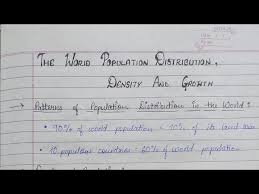 The World Population Distribution,
Density And Growth
Patterns of Population Distribution in the World :
90% of world population = 10% of its land area
10 populous countries = 60% of world population